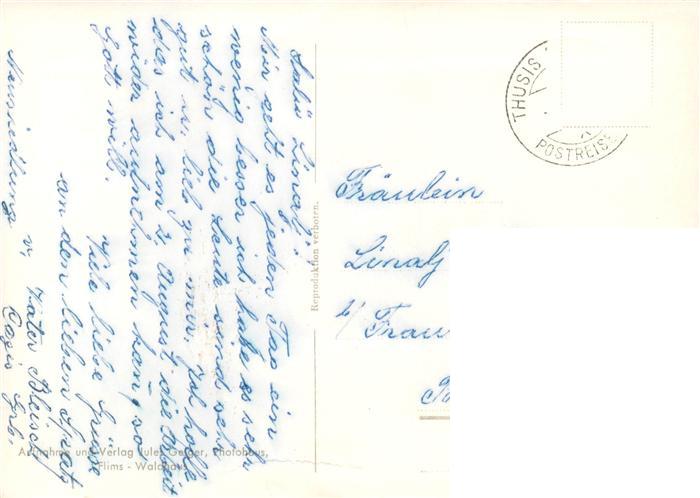 Salü Linalj.
Mir geht es jeden Tag ein
wenig besser ich habe es sehr
schön die Leute sind sehr
gut u. lieb zu mir. Ich hoffe
das ich am 2 August die Arbeit
wider aufnehmen kan, so
Gott will.
Viele liebe Grüsse
an den lieben Spatz
v. Vater Bleisch
Neusiedlung Cazis Grb.
Reproduktion verboten.
Aufnahme und Verlag Jules Geiger, Photohaus,
Flims - Waldhaus
THUSIS
POSTREISE
Fräulein
Linalj
b/ Frau